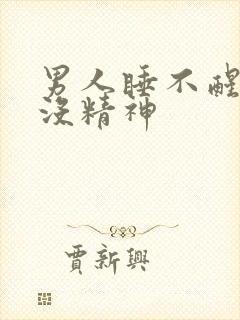 男人睡不醒
没精神
賈新興